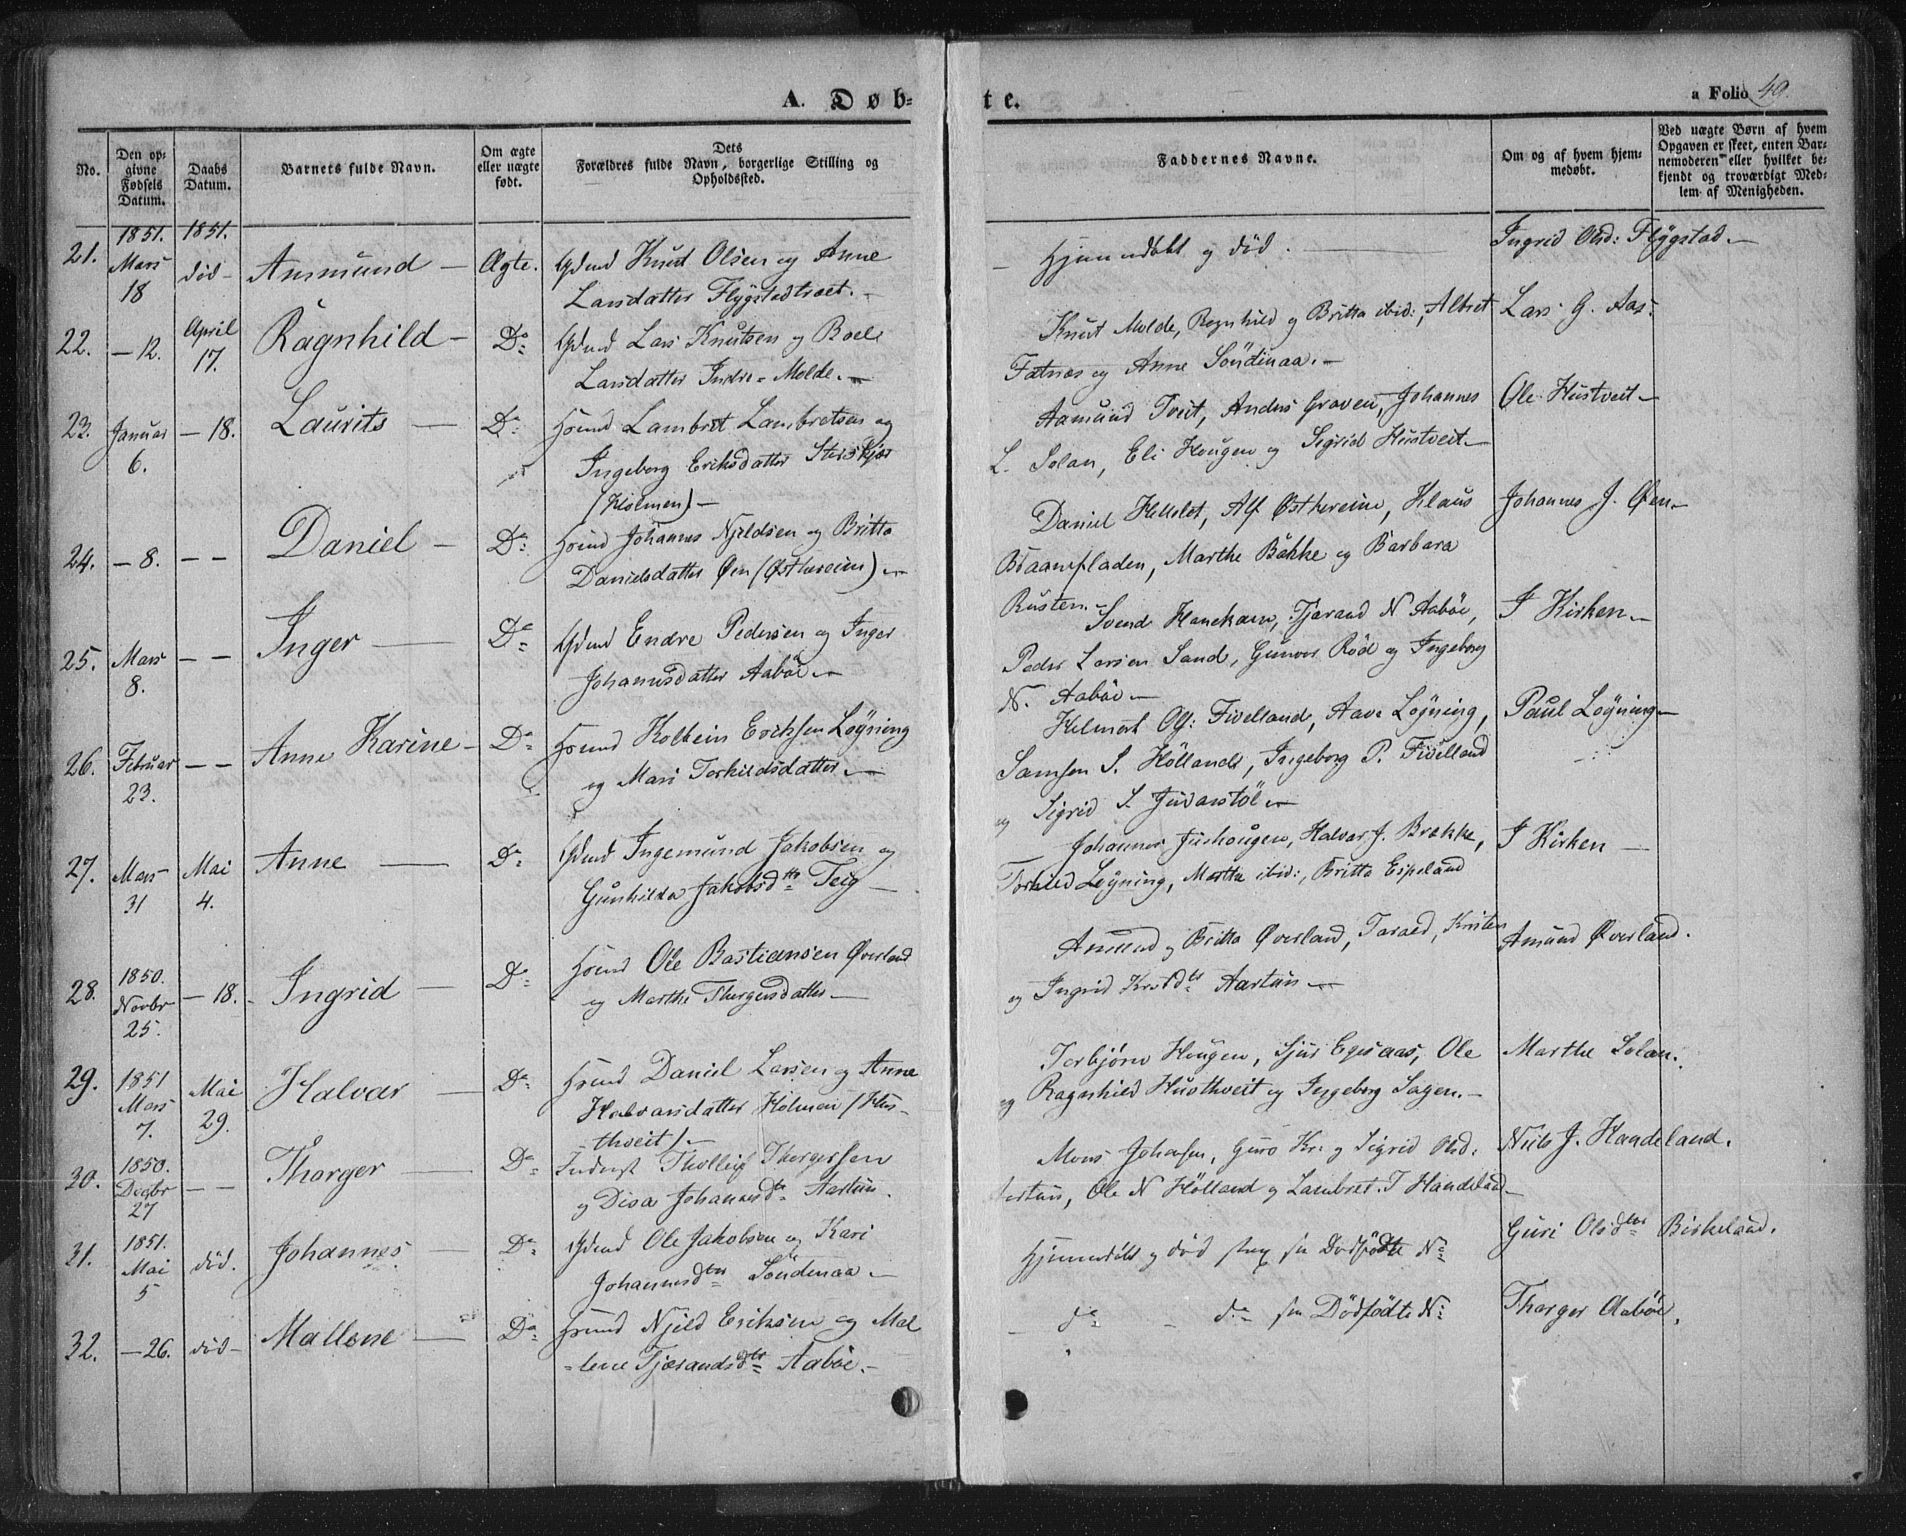 A. Døb-
te.
a Folio 49.
No.
Den op-
givne
Fødsels
Datum.
Daabs
Datum.
Barnets fulde Navn.
Om ægte
eller uægte
født.
Dets
Forældres fulde Navn, borgerlige Stilling og
Opholdssted.
Faddernes Navne.
Om og af hvem hjem-
medøbt.
Ved uægte Børn af hvem
Opgaven er skeet, enten Bar-
nemoderen eller hvilket be-
kjendt og troværdigt Med-
lem af Menigheden.
21. 1851. Mars 18 1851. død - Aamund - Ægte. Gdmd Knut Olsen og Anne
Larsdatter Flygstadtræet. -
- Hjemmedøbt og død. Ingrid Olsd: Flygstad. -
22. - 12. April 17. Ragnhild - Do Gdmd Lars Knutsen og Boel
Larsdatter Indre-Molde. -
Knut Molde, Ragnhild og Britta ibid:, Albret Lars G. Aas.
Fatnæs og Anne Söndenaa. -
23. Januar 6. - 18. Laurits - Do Hsmd Lambret Lambretsen og
Ingeborg Eriksdatter
(Holmen) -
Aamund Tveit, Anders Graven, Johannes Ole Hustveit -
L. Solan, Eli Hougen og Sigrid Hustveit -
24. - 8. - - Daniel - Do Hsmd Johannes Njeldsen og Britta
Danielsdatter Øen (Østhereim) -
Daniel Alf Østhereim, Klaus Johannes J. Øen -
Braanfladen, Marthe Bakke og Barbara
Rusten. -
25. Mars 8. - - Inger - Do Gdmd Endre Pedersen og Inger
Johannesdatter Aabøe -
Svend Hanekam, Tjerand N Aabøe, I Kirken -
Peder Larsen Sand, Gunvor Röd og Ingeborg
N. Aabøe -
26. Februar 23. - - Anne Karine - Do Hsmd Kolbein Eriksen Löyning
og Mari Torkildsdatter -
Helmert Ols: Fivelland, Aave Löyning, Paul Löyning -
Samson S. Hölland, Ingeborg P. Fivelland
og Sigrid S. Juvastöl -
27. Mars 31 Mai 4. Anne - Do Gdmd Ingemund Jakobsen og
Gunhilda Jakobsdtr Teig -
Johannes Juvhougen, Halvar J. Brække, I Kirken -
Torkild Löyning, Marthe ibid:, Britta Espeland
28. 1850. Novbr 25. - 18. Ingrid - Do Hsmd Ole Bastiansen Øverland
og Marthe Thorgersdatter -
Amund og Britta Øverland, Tarald, Kristen Amund Øverland.
og Ingrid Krist.dtr Aartun -
29. 1851 Mars 7. Mai 29. Halvar - Do Hsmd Daniel Larsen og Anne
Halvarsdatter Holmen (Hus-
thveit) -
Torbjørn Hougen, Sjur Egesaas, Ole Marthe Solan.
og Ragnhild Husthveit og Ingeborg Sagen. -
30. 1850. Decbr 27 - - Thorger - Do Inderst Thollef Thorgersen
og Disa Johannesdtr Aartun.
Mons Johansen, Guro Kr. og Sigrid Olsd: Niels J. Handeland.
Aartun, Ole N Hölland og Lambret J Handeland -
31. 1851. Mai 5 død. Johannes - Do Gdmd Ole Jakobsen og Kari
Johannesdtr Söndenaa -
Hjemmedöbt og död strax see Dödfödte No Guri Olsdtr Birkeland.
32. - 26. død - Mallene - Do Hsmd Njeld Eriksen og Mal
-lene Tjærandsdtr Aabøe. -
- do - do see Dödfödte No Thorger Aabøe.